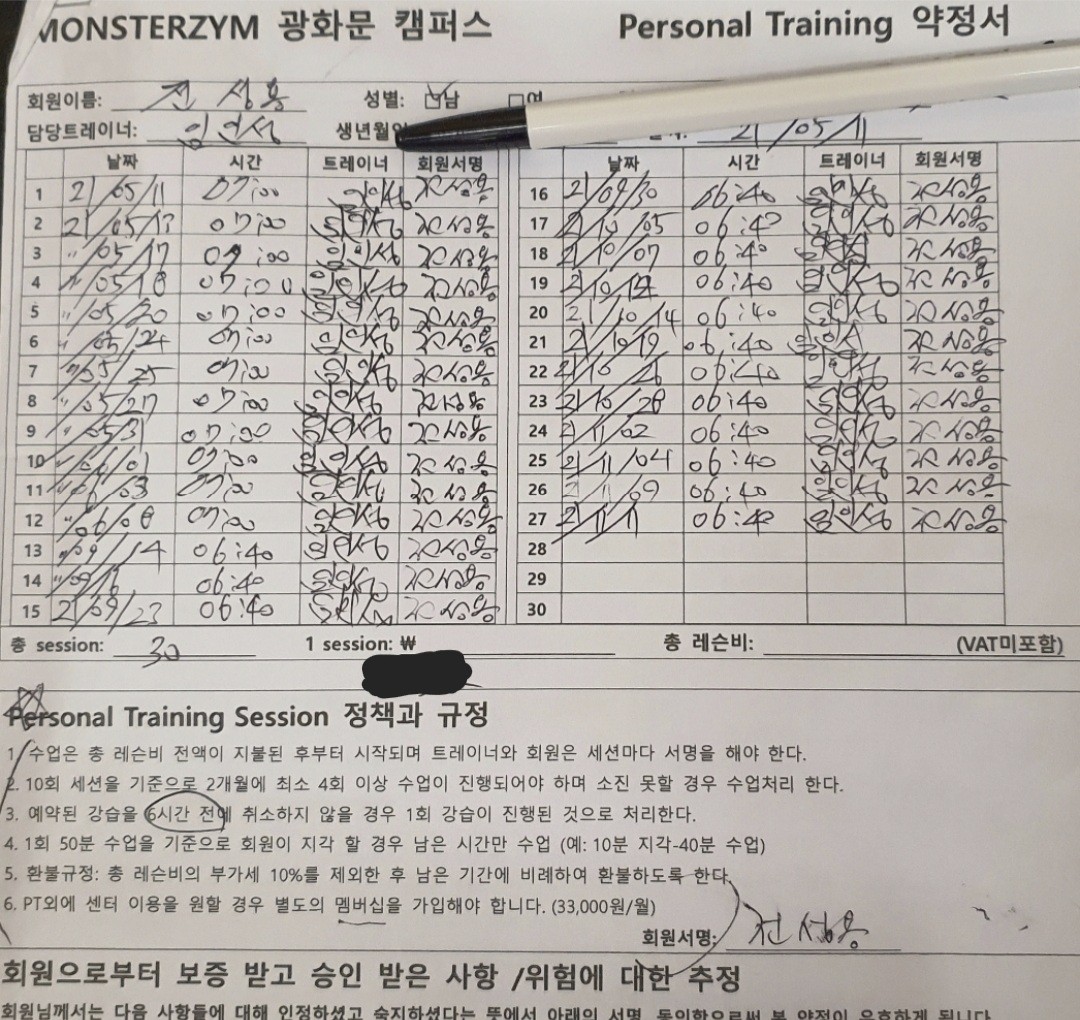 MONSTERZYM 광화문 캠퍼스 Personal Training 약정서
회원이름: 전성용 성별: 남 여
담당트레이너: 임인섭 생년월일 21/05/11
날짜 시간 트레이너 회원서명 날짜 시간 트레이너 회원서명
1 21/05/11 07:00 임인섭 전성용 16 21/09/30 06:40 임인섭 전성용
2 21/05/13 07:00 임인섭 전성용 17 21/10/05 06:40 임인섭 전성용
3 〃/05/17 07:00 임인섭 전성용 18 21/10/07 06:40 임인섭 전성용
4 〃/05/18 07:00 임인섭 전성용 19 21/10/12 06:40 임인섭 전성용
5 〃/05/20 07:00 임인섭 전성용 20 21/10/14 06:40 임인섭 전성용
6 〃/05/24 07:00 임인섭 전성용 21 21/10/19 06:40 임인섭 전성용
7 〃/05/25 07:00 임인섭 전성용 22 21/10/26 06:40 임인섭 전성용
8 〃/05/27 07:00 임인섭 전성용 23 21/10/28 06:40 임인섭 전성용
9 〃/05/31 07:00 임인섭 전성용 24 21/11/02 06:40 임인섭 전성용
10 〃/06/01 07:00 임인섭 전성용 25 21/11/04 06:40 임인섭 전성용
11 〃/06/03 07:00 임인섭 전성용 26 21/11/09 06:40 임인섭 전성용
12 〃/06/08 07:00 임인섭 전성용 27 21/11/11 06:40 임인섭 전성용
13 〃/09/14 06:40 임인섭 전성용 28
14 〃/09/16 06:40 임인섭 전성용 29
15 21/09/23 06:40 임인섭 전성용 30
총 session: 30 1 session: ₩ 총 레슨비: (VAT미포함)
Personal Training Session 정책과 규정
1. 수업은 총 레슨비 전액이 지불된 후부터 시작되며 트레이너와 회원은 세션마다 서명을 해야 한다.
2. 10회 세션을 기준으로 2개월에 최소 4회 이상 수업이 진행되어야 하며 소진 못할 경우 수업처리 한다.
3. 예약된 강습을 6시간 전에 취소하지 않을 경우 1회 강습이 진행된 것으로 처리한다.
4. 1회 50분 수업을 기준으로 회원이 지각 할 경우 남은 시간만 수업 (예: 10분 지각-40분 수업)
5. 환불규정: 총 레슨비의 부가세 10%를 제외한 후 남은 기간에 비례하여 환불하도록 한다.
6. PT외에 센터 이용을 원할 경우 별도의 멤버십을 가입해야 합니다. (33,000원/월)
회원서명: 전성용
회원으로부터 보증 받고 승인 받은 사항 /위험에 대한 추정
회원님께서는 다음 사항들에 대해 인정하셨고 숙지하셨다는 뜻에서 아래의 서명, 동의함으로써 본 약정이 유효하게 됩니다.